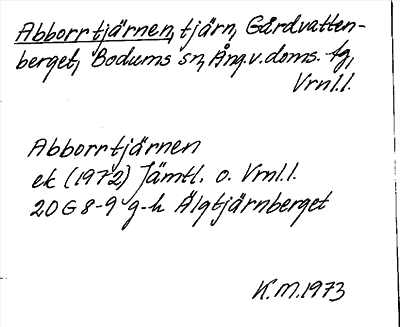 Abborrtjärnen, tjärn, Gårdvatten-
berget, Bodums sn, Ång.v.doms. tg,
Vrnl.l.
Abborrtjärnen
ek (1972) Jämtl. o. Vrnl.l.
20G 8-9 g-h Älgtjärnberget
K.M.1973